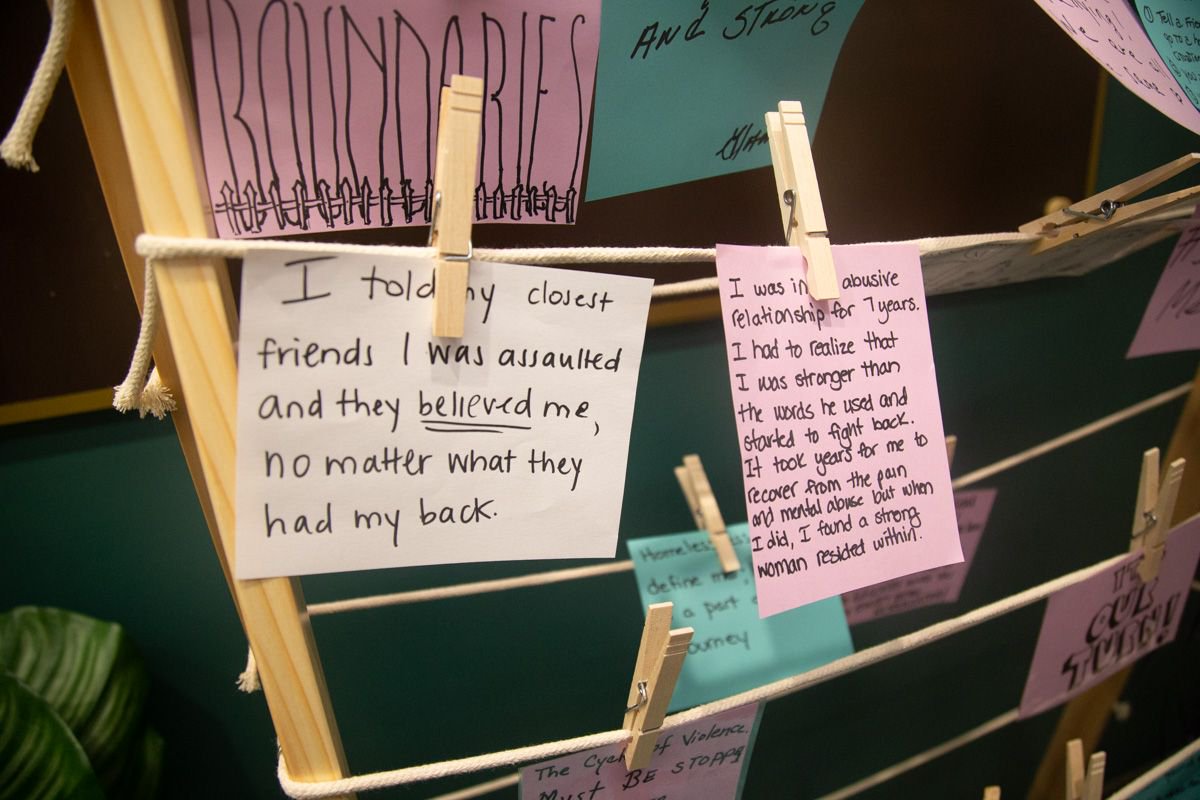 BOUNDARIES
AND STRONG
I told my closest
friends I was assaulted
and they believed me,
no matter what they
had my back.
I was in abusive
relationship for 7 years.
I had to realize that
I was stronger than
the words he used and
started to fight back.
It took years for me to
recover from the pain
and mental abuse but when
I did, I found a strong
woman resided within.
define me
a part
OUR
TURN!
The of Violence.
MUST BE